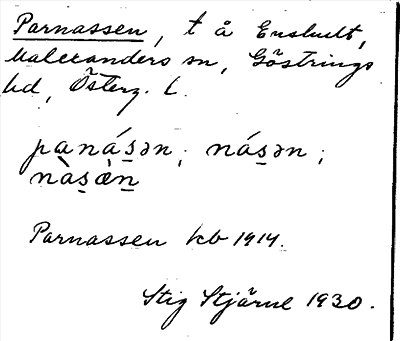 Parnassen, t å Enshult,
Malexanders sn, Göstrings
hd, Österg. l.
panásən; násən;
nàsæ̀n
Parnassen kb 1914.
Stig Stjärne 1930.